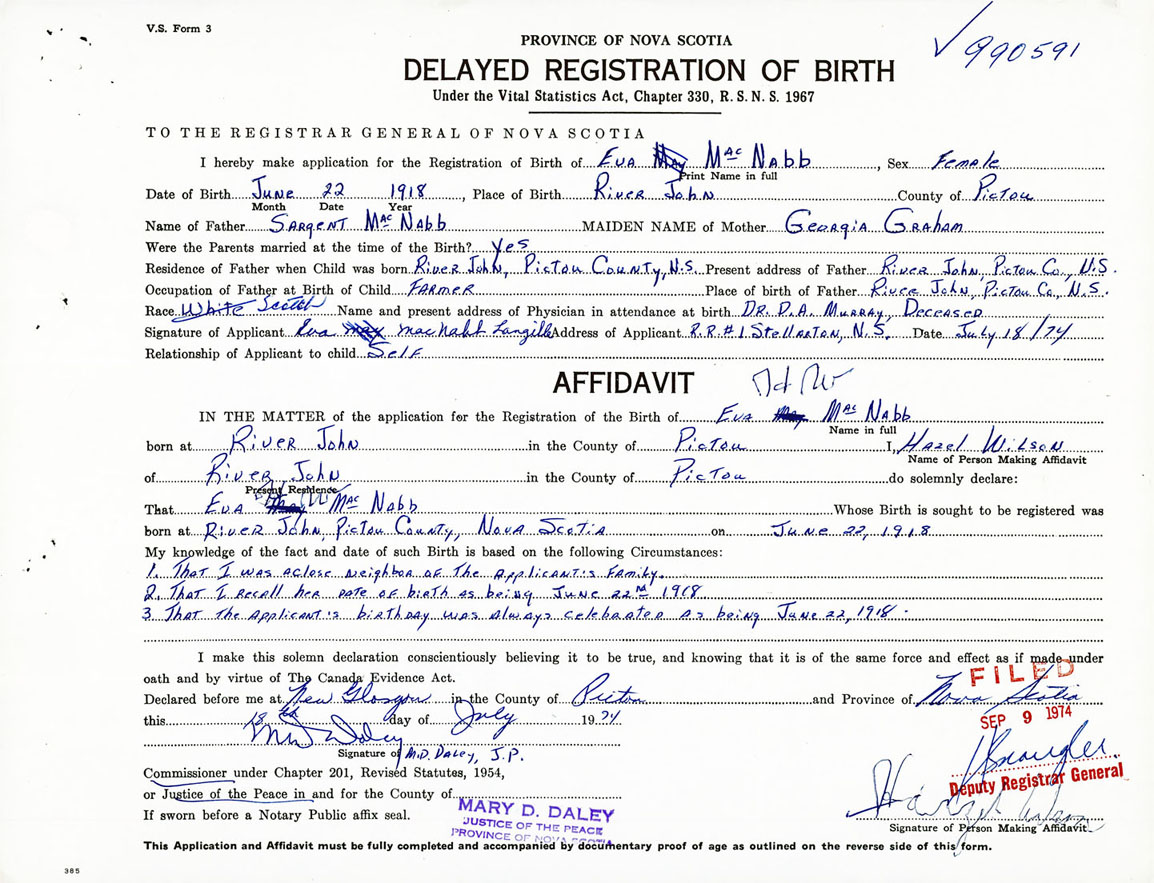 V.S. Form 3
PROVINCE OF NOVA SCOTIA
990591
DELAYED REGISTRATION OF BIRTH
Under the Vital Statistics Act, Chapter 330, R.S.N.S. 1967
TO THE REGISTRAR GENERAL OF NOVA SCOTIA
I hereby make application for the Registration of Birth of Eva May Mac Nabb, Sex Female
Print Name in full
Date of Birth June 22 1918, Place of Birth River John County of Pictou
Month Date Year
Name of Father Sargent Mac Nabb MAIDEN NAME of Mother Georgia Graham
Were the Parents married at the time of the Birth? Yes
Residence of Father when Child was born River John, Pictou County, N.S. Present address of Father River John, Pictou Co., N.S.
Occupation of Father at Birth of Child Farmer Place of birth of Father River John, Pictou Co., N.S.
Race White Scotch Name and present address of Physician in attendance at birth Dr. D.A. Murray, Deceased
Signature of Applicant Eva May MacNabb Langille Address of Applicant R.R.#1 Stellarton, N.S. Date July 18/74
Relationship of Applicant to child Self
AFFIDAVIT
IN THE MATTER of the application for the Registration of the Birth of Eva May Mac Nabb
Name in full
born at River John in the County of Pictou I, Hazel Wilson
Name of Person Making Affidavit
of River John in the County of Pictou do solemnly declare:
Present Residence
That Eva May Mac Nabb Whose Birth is sought to be registered was
born at River John, Pictou County, Nova Scotia on June 22, 1918
My knowledge of the fact and date of such Birth is based on the following Circumstances:
1. That I was a close neighbor of the applicant's family.
2. That I recall her date of birth as being June 22nd 1918
3 That the applicant's birthday was always celebrated as being June 22, 1918.
I make this solemn declaration conscientiously believing it to be true, and knowing that it is of the same force and effect as if made under
oath and by virtue of The Canada Evidence Act.
FILED
Declared before me at New Glasgow in the County of Pictou and Province of Nova Scotia
this 18 day of July 1974
SEP 9 1974
M D Daley
Signature of M.D. Daley, J.P.
Commissioner under Chapter 201, Revised Statutes, 1954,
Deputy Registrar General
or Justice of the Peace in and for the County of
MARY D. DALEY
JUSTICE OF THE PEACE
PROVINCE OF NOVA SCOTIA
If sworn before a Notary Public affix seal.
Hazel Wilson
Signature of Person Making Affidavit
This Application and Affidavit must be fully completed and accompanied by documentary proof of age as outlined on the reverse side of this form.
385